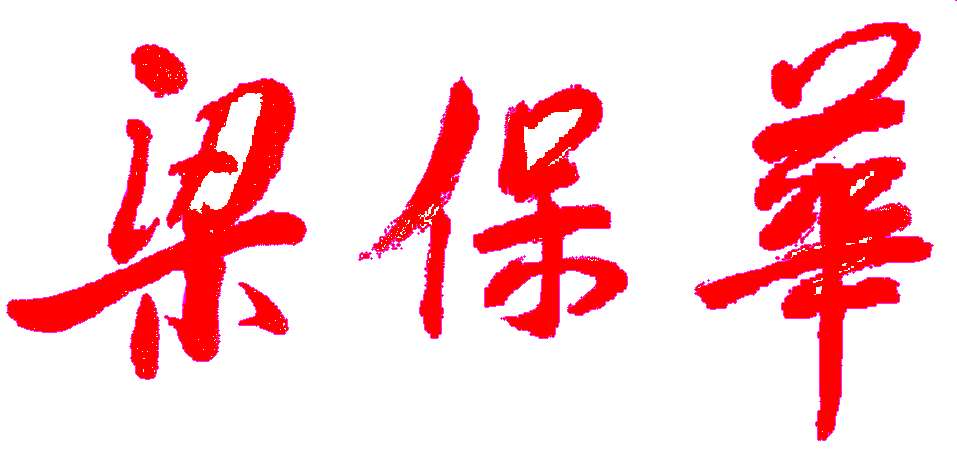 梁保華